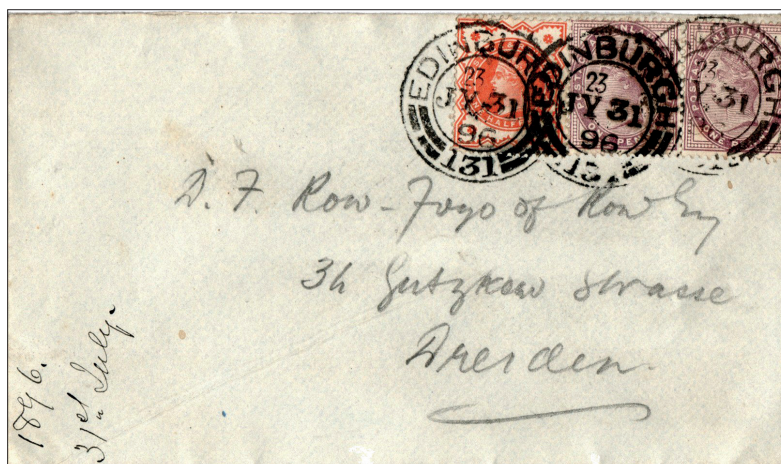 EDINBURGH
23
JY 31
96
131
EDINBURGH
23
JY 31
96
131
23
JY 31
D. F. Row-Fogo of Row Esq
Gutzkow Strasse
Dresden.
1896.
31st July.